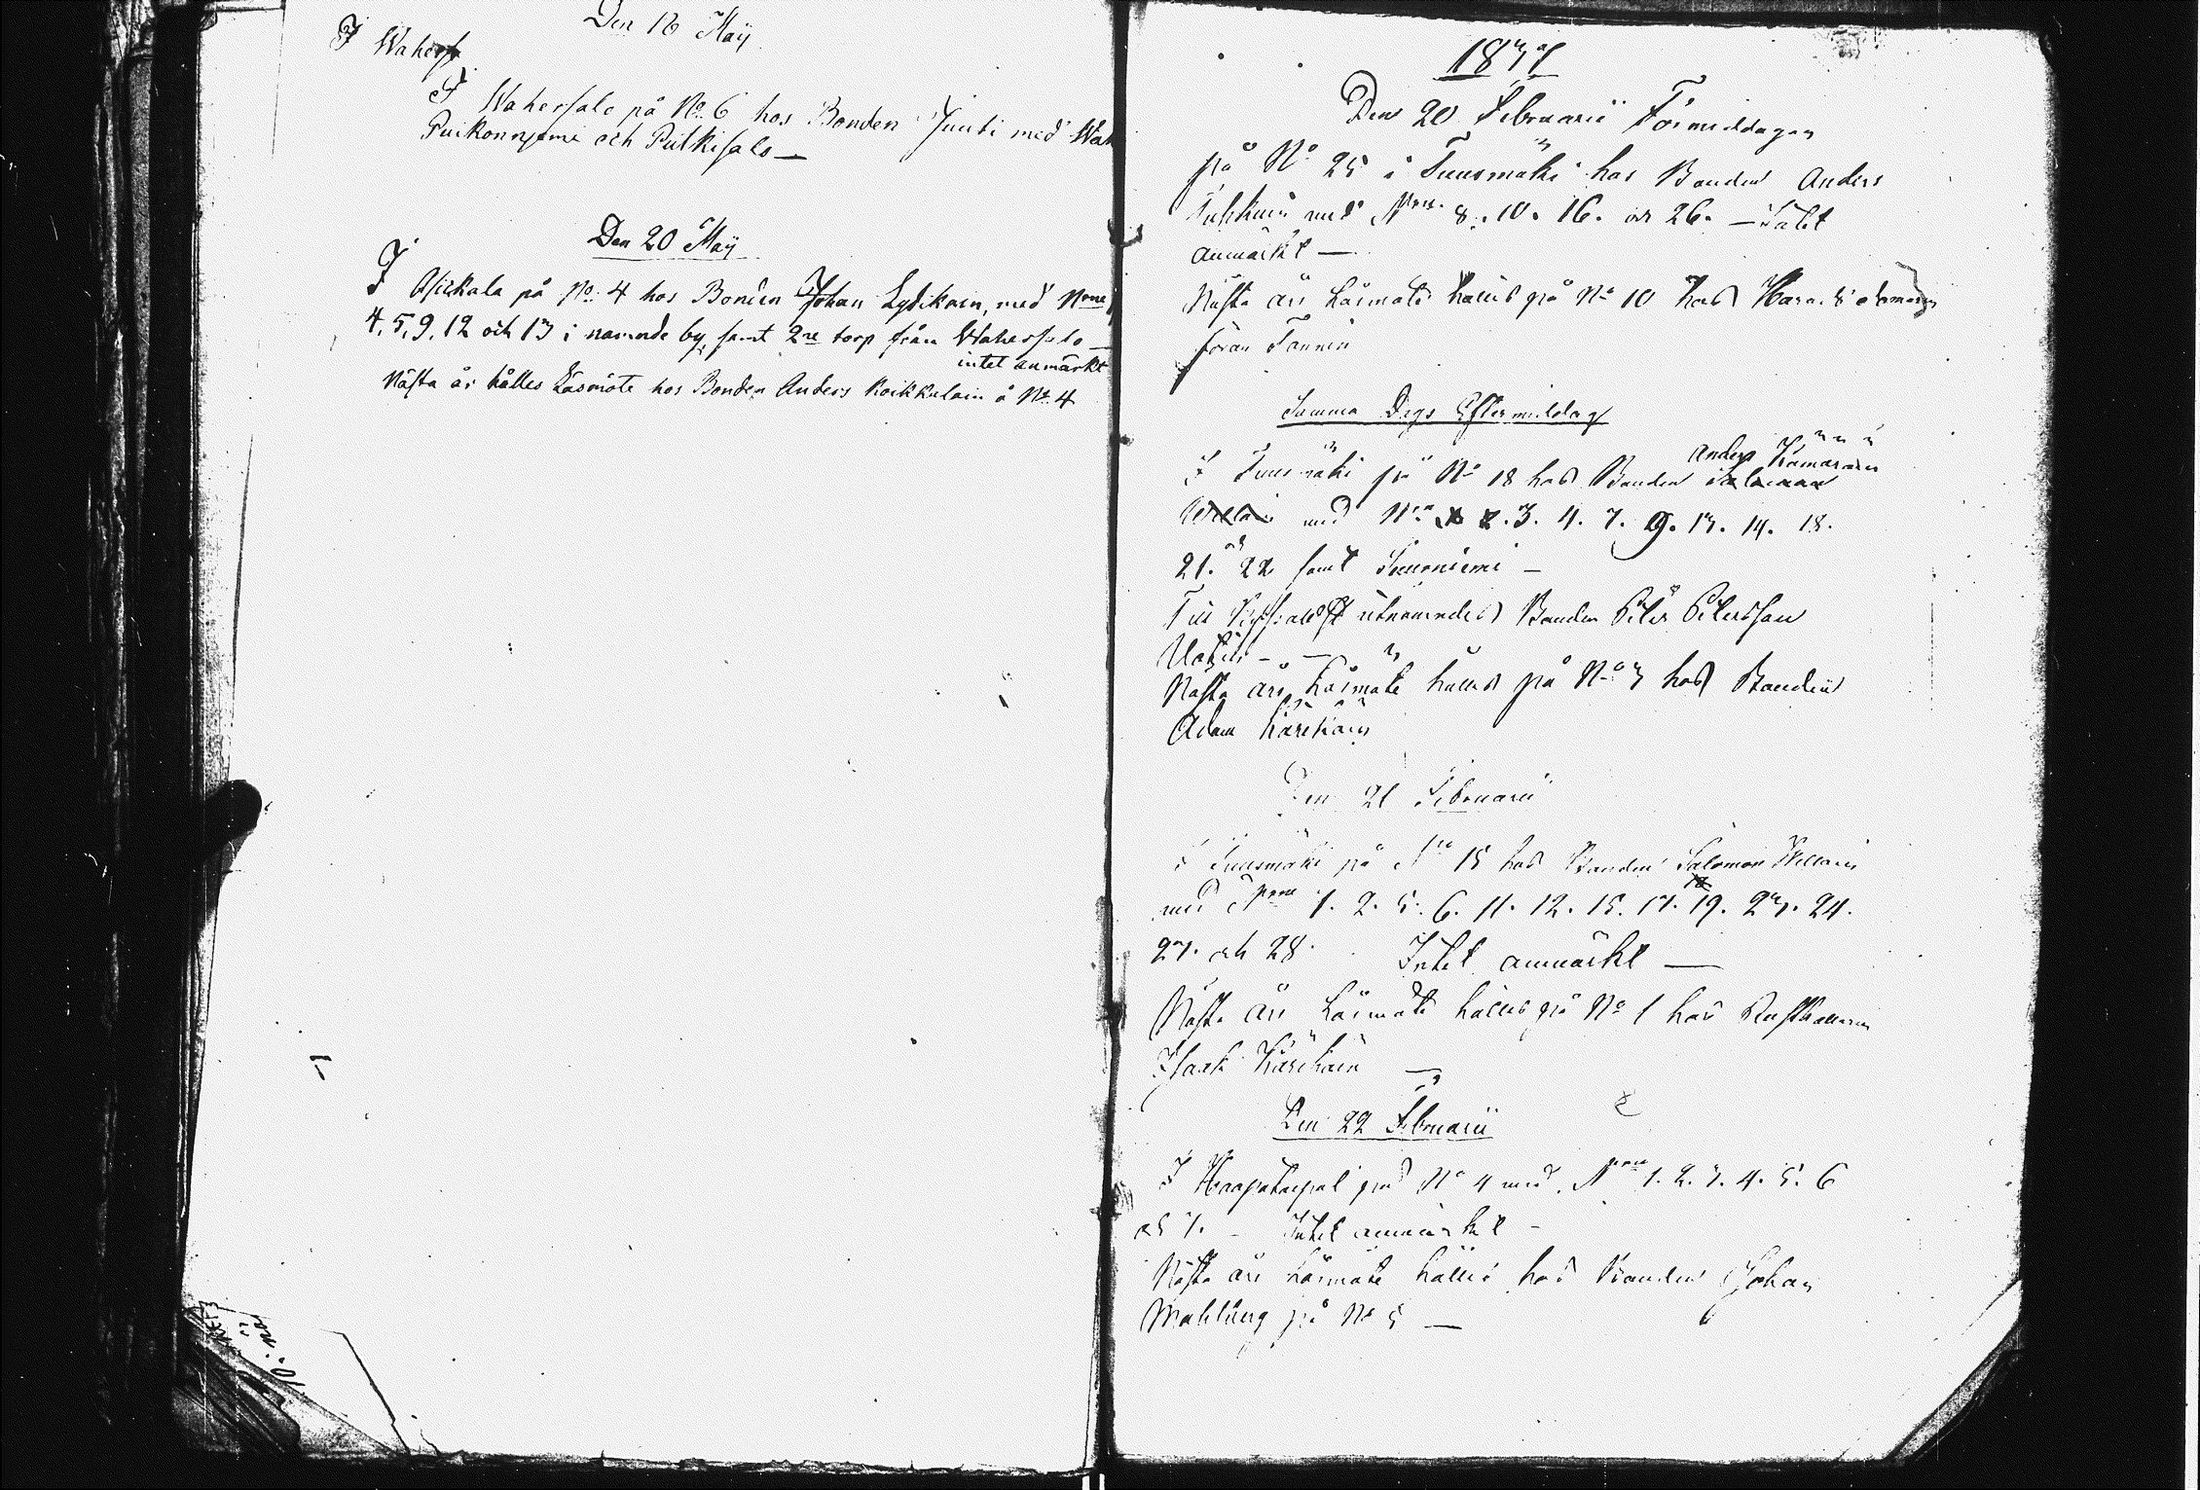 Den 18 Maij
I Wahers
I Wahersalo på No 6 hos Bonden Juuti med Wah
Puikonnjemi och Pitkisalo —
Den 20 Maij
I Miekala på No 4 hos Bonden Johan Lydikain, med Nrne
4, 5, 9, 12 och 13 i namnde by, samt 2ne torp från Wahersalo —
intet anmärkt
Nästa år hålles Läsmöte hos Bonden Anders Koikkalain å No 4
1837
Den 20 Februarii Förmiddagen
på No 25 i Tuusmäki hos Bonden Anders
med Nrne 8. 10. 16. och 26. — Intet
anmärkt —
Nästa års Läsmöte hålles på No 10 hos
Göran Tannin
Samma Dags Eftermiddag
Anders Hämäläin
I Tuusmäki på No 18 hos Bonden Salomon
Willain med Nrne 3. 4. 7. 9. 13. 14. 18.
21. och 22 samt Suurniemi —
Till utnämndes Bonden Peter Petersson
Nästa års Läsmöte hålles på No 3 hos Bonden
Adam Kärckäin
Den 21 Februarii
I Tuusmäki på No 15 hos Bonden Salomon Willain
med Nrne 1. 2. 5. 6. 11. 12. 15. 17. 19. 23. 24.
27. och 28. Intet anmärkt —
Nästa års Läsmöte hålles på No 1 hos Rusthållaren
Isaak Kärckäin —
Den 22 Februarii
I Haapataipal på No 4 med Nrne 1. 2. 3. 4. 5. 6
och 7. — Intet anmärkt —
Nästa års Läsmöte hålles hos Bonden Johan
på No 5 —